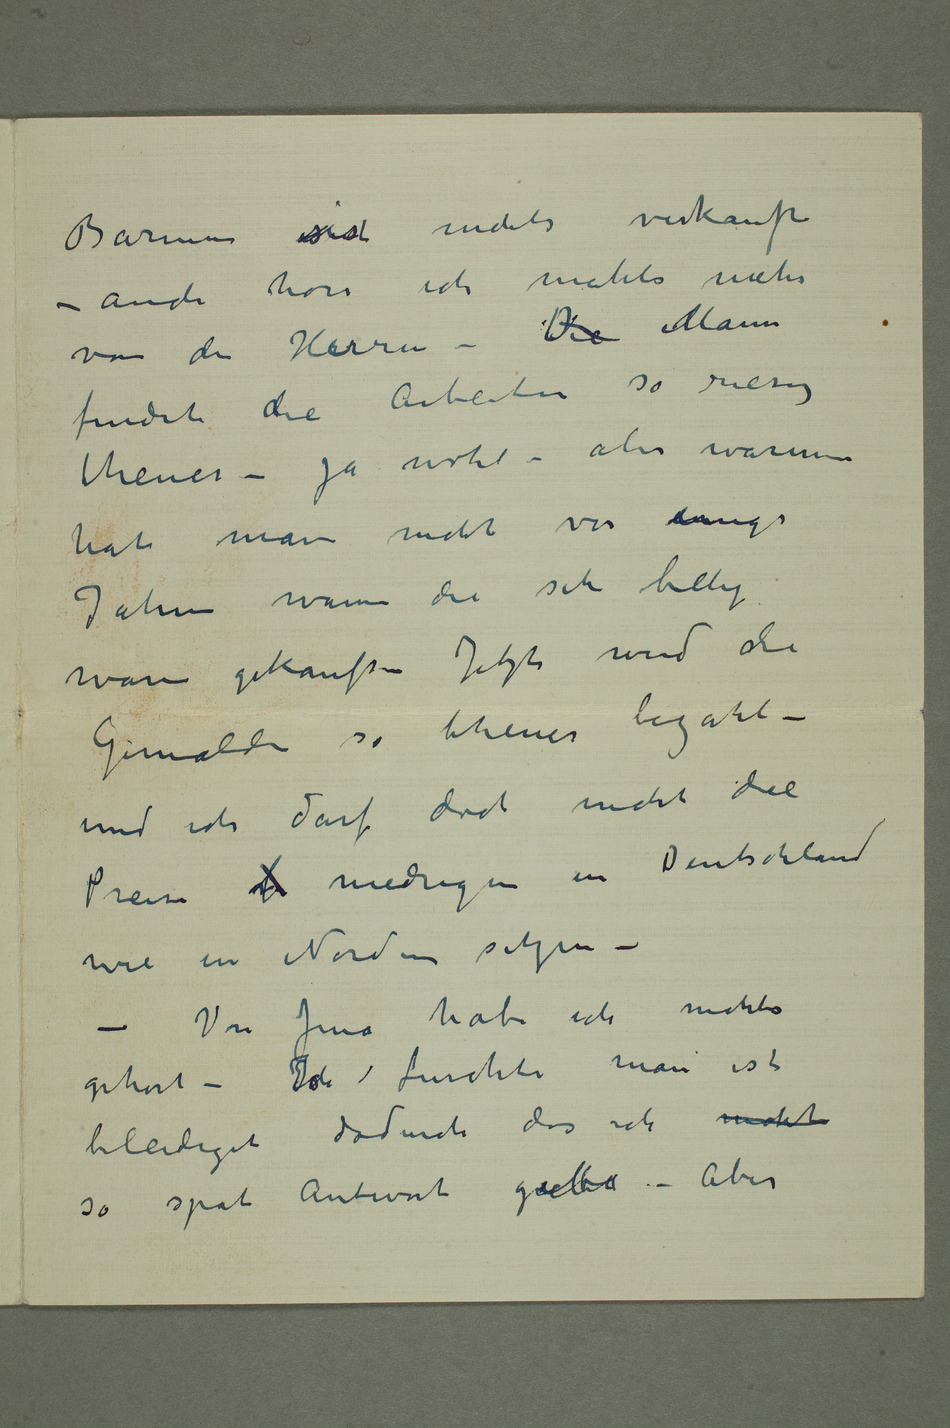 Barmen ist nichts verkauft
– auch hore ich nichts mehr
von den Herren – Die Mann
findet die Arbeiten so riesig
theuer – ja wohl – aber warum
hat man nicht vor einige
Jahren wann die sehr billig
waren gekauft – Jetzt wird die
Gemälde so theuer bezahlt –
und ich darf doch nicht die
Preise niedrigen in Deutschland
wie in Norden setzen –
– Von Jena habe ich nichts
gehört – Ich furchte man ist
beleidiget dadurch das ich nicht
so spat Antwort giebe – Aber